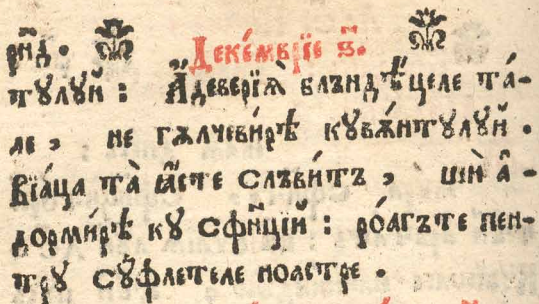 рн҃д. Деке́мврїе ѕ҃.
тꙋлꙋй: А҆деверїѧ̀ блънд̾ѣ́целе та́-
ле, не гѫлчеви́рѣ кꙋвѫ́нтꙋлꙋй.
Вїа́ца та̀ ꙗ҆́сте слъви́тъ, шѝ а҆-
дорми́рѣ кꙋ сфн҃цїй: ро́агъте пен-
трꙋ сꙋ́флетеле ноастре.